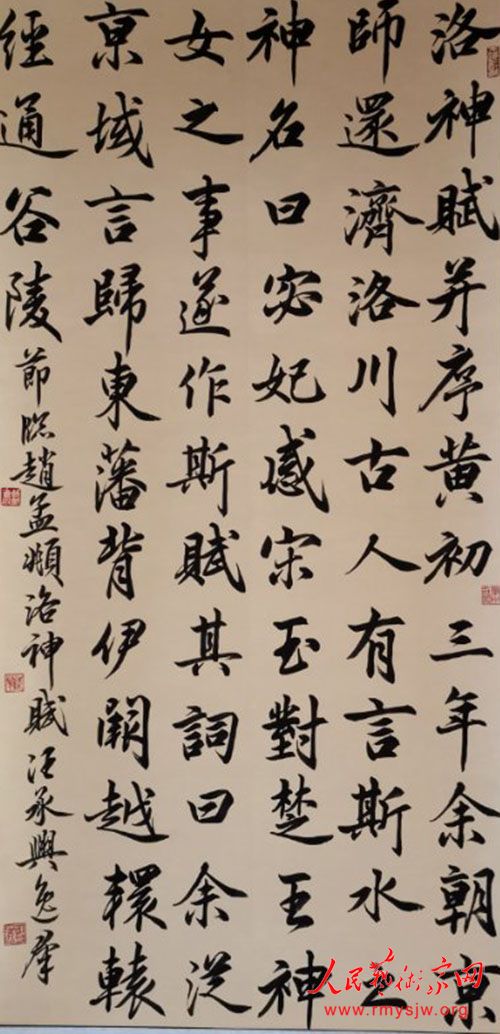 洛神賦并序黄初三年余朝京
師還濟洛川古人有言斯水之
神名曰宓妃感宋玉對楚王神
女之事遂作斯賦其詞曰余從
京域言歸東藩背伊闕越轘轅
經通谷陵
節臨趙孟頫洛神賦汪承興
人民藝術家网
www.rmysjw.org